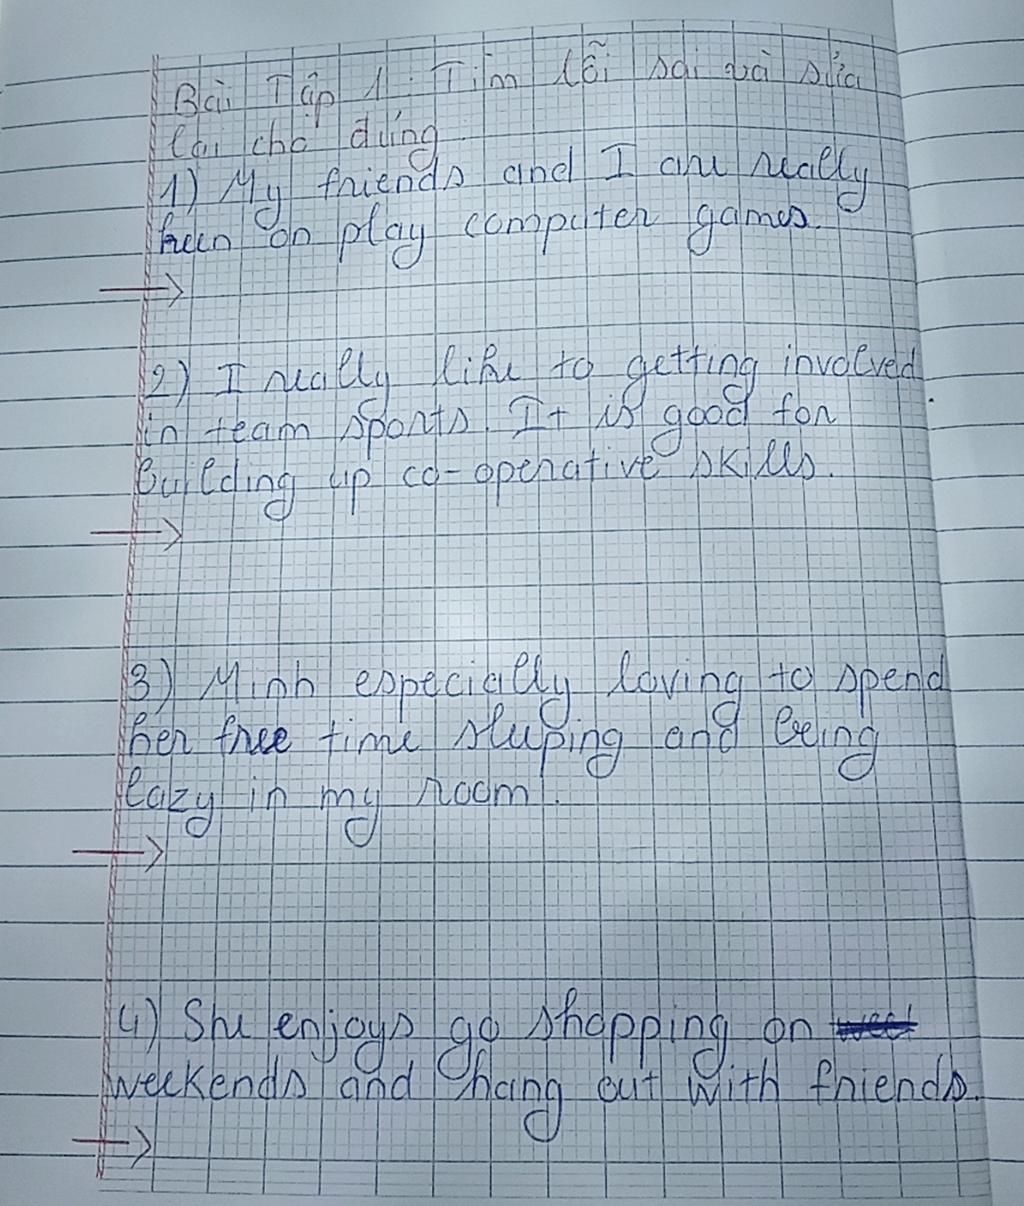 Bài Tập 1: Tìm lỗi sai và sửa
lại cho đúng
1) My friends and I are really
keen on play computer games.
2) I really like to getting involved
in team sports. It is good for
building up co-operative skills.
3) Minh especially loving to spend
her free time sleeping and being
lazy in my room.
4) She enjoys go shopping on
weekends and hang out with friends.